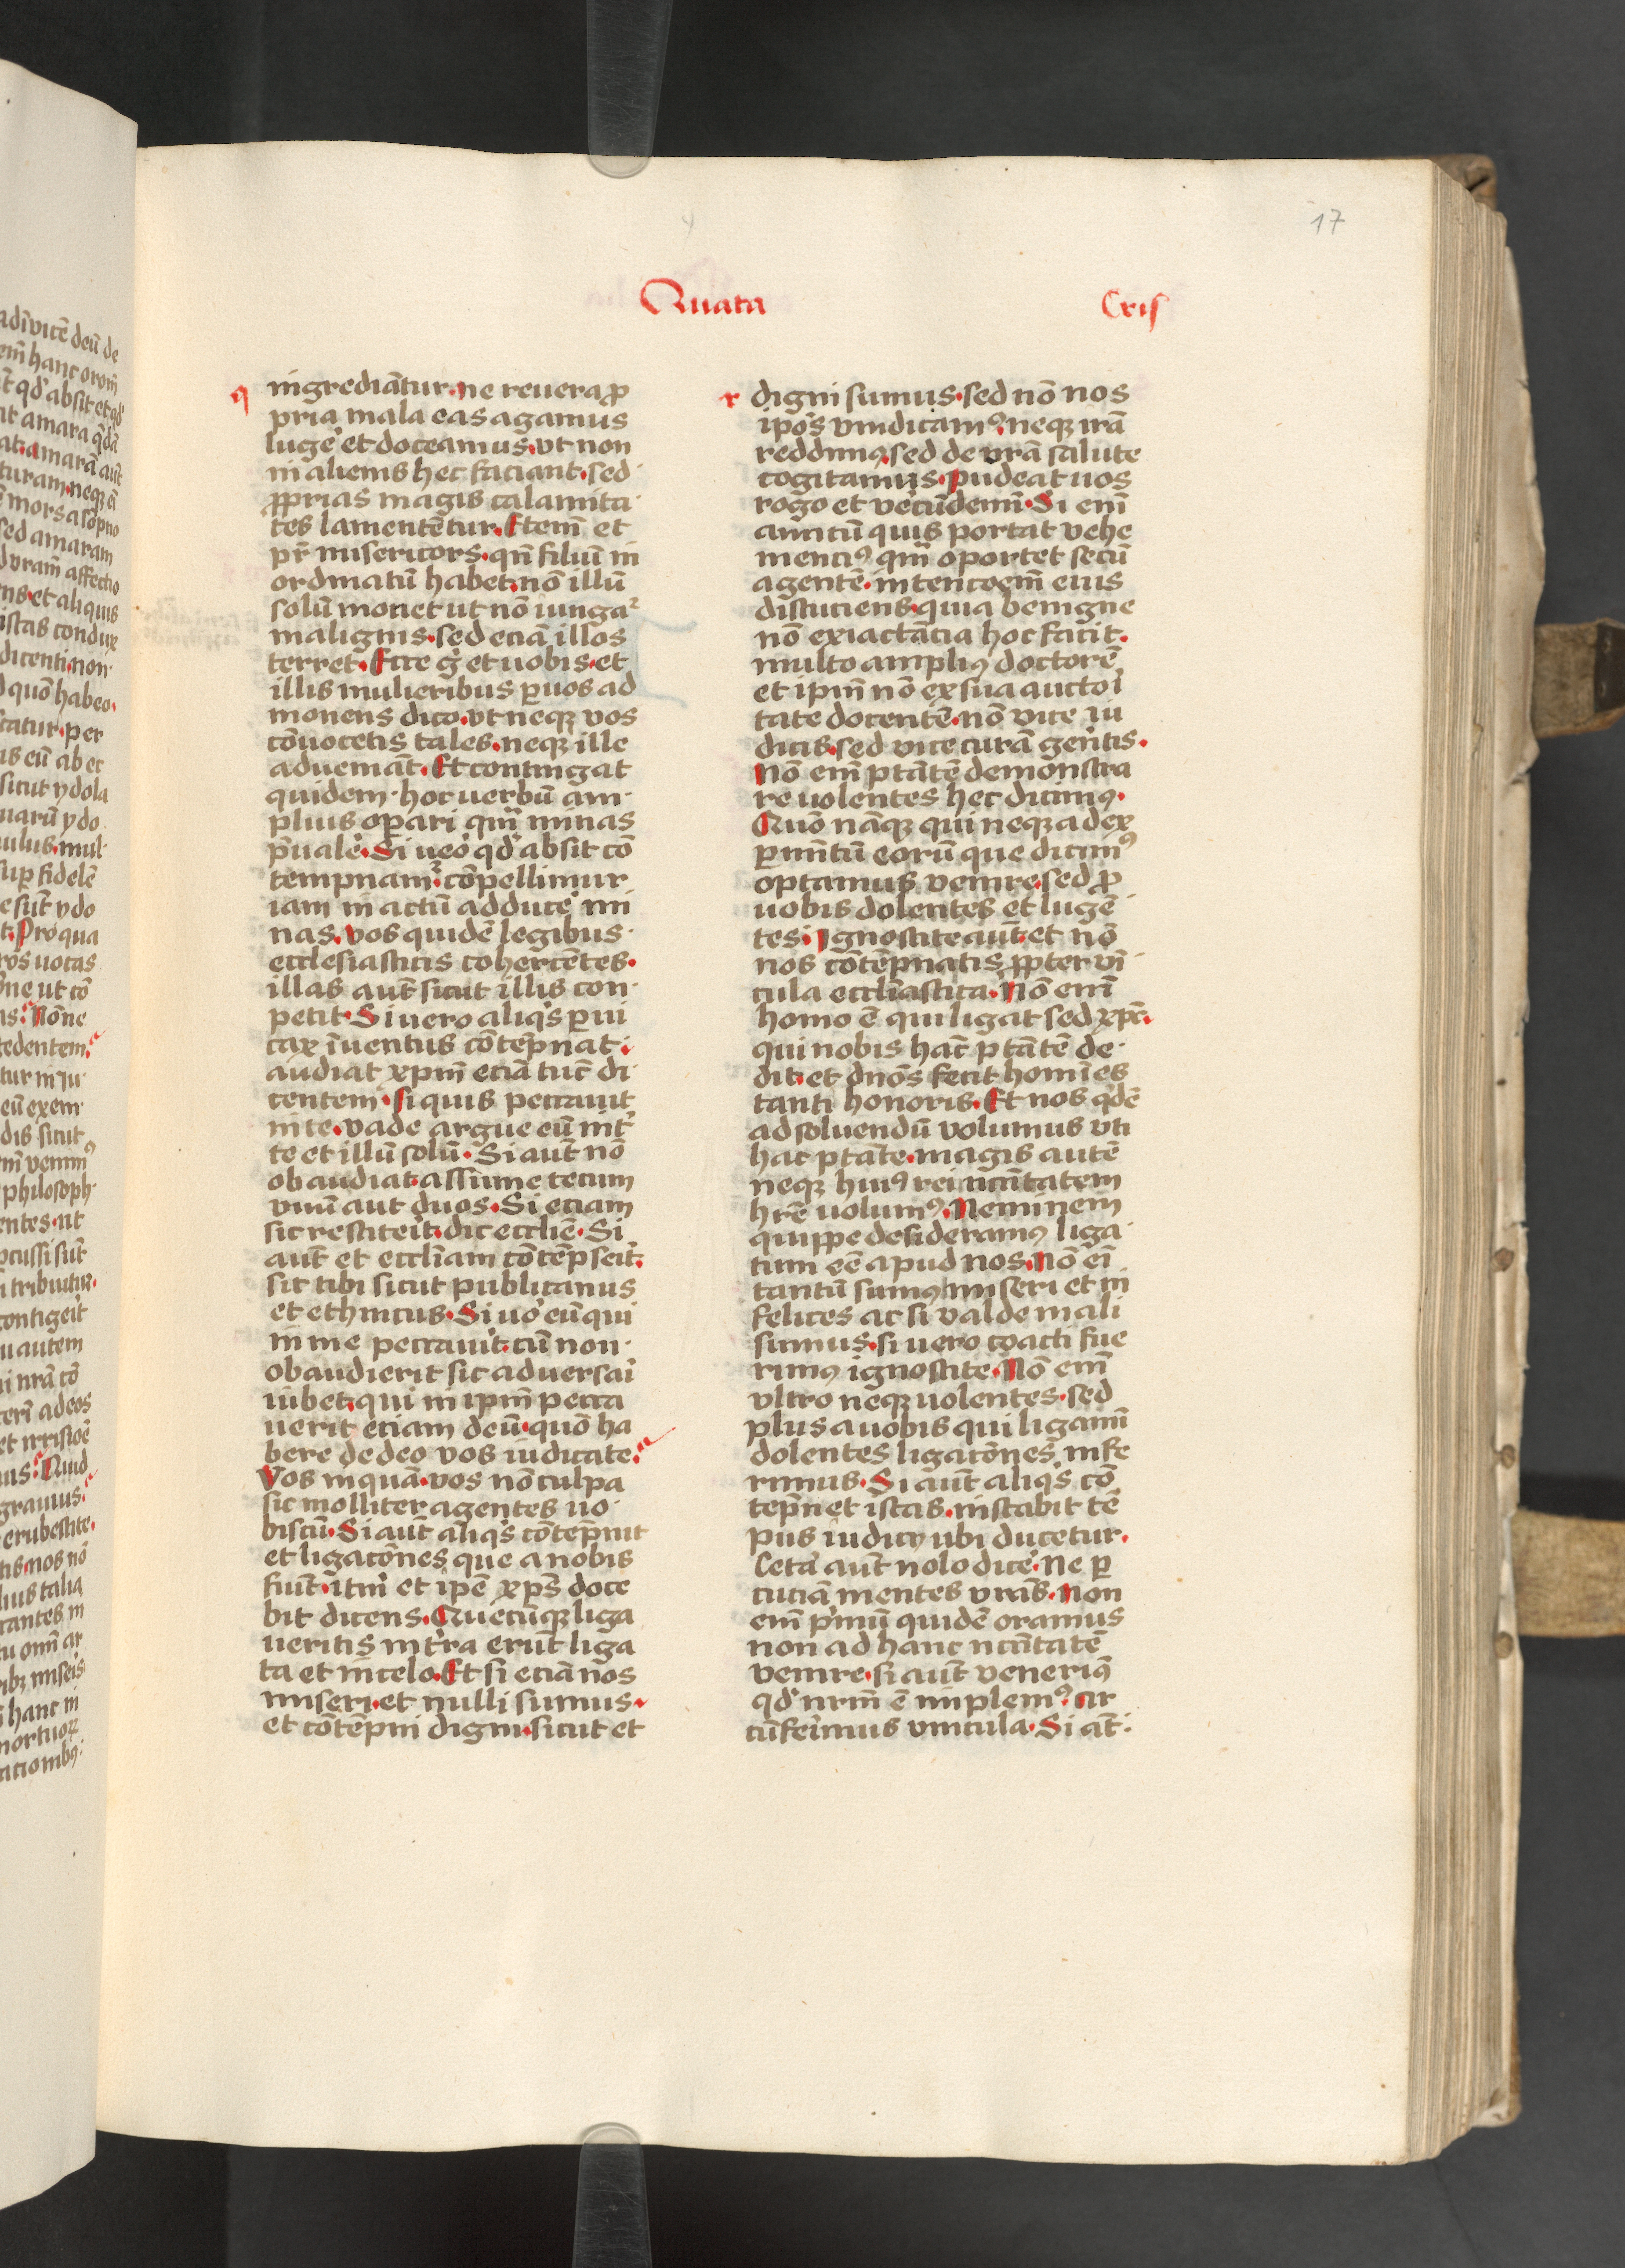 17
Quata Cris
q
ingrediātur. ne reuera ꝓ
pria mala eas agamus
luge᷑ et doceamus. vt non
in alienis hec faciant. sed
ꝓprias magis calamita
tes lamentētur. Etem̄ et
pr̄ misericors. qn̄ filiū in
ordinatū habet. nō illū
solū monet ut nō iungaᷣ
malignis. sed eciā illos
terret. Ecce gͦ et uobis. et
illis mulieribus ꝑ uos ad
monens dico. vt neqꝫ vos
cōuocetis tales. neqꝫ ille
adueniāt. Et contingat
quidem. hoc uerbū am
plius oꝑari qm̄ minas
p̄uale᷑. Si ueͦo qd̛ absit cō
tempnamᷣ. cōpellimur
iam in actū adduce᷑ mi
nas. vos quidē legibus
ecclesiasticis cohercētes.
illas aut̄ sicut illis con
petit. Si uero aliqͥs ꝑui
cax īuentus cōtēpnat.
audiat xp̄m eciā tūc di
centem. si quis peccauit
in te. vade argue eū int̛
te et illū solū. Si aut̄ nō
obaudiat. assume tecum
vnū aut duos. Si eciam
sic restiteīt. dic eccl̄ie. Si
aut̄ et eccl̄iam cōtēpseīt.
sit tibi sicut publicanus
et ethnicus. Si uͦo eū qui
in me peccauīt. cū non
obaudierit sic aduersaī
iubet. qui in ip̄m pecca
uerit eciam deū. quō ha
bere de deo vos iudicate.
Vos inquā. vos nō culpa
sic molliter agentes uo
biscū. Si aut̄ aliqͥs cōtēpnit
et ligacōnes que a nobis
fiūt. itm̄ et ip̄e xp̄s doce
bit dicens. Quecūqꝫ liga
ueritis in t̛ra erūt liga
ta et in celo. Et si eciā nos
miseri. et nulli sumus.
et cōtēpni digni. sicut et
r
digni sumus. sed nō nos
ip̄os vindicamꝰ. neqꝫ irā
reddimꝰ. sed de vrā salute
cogitamus. Pudeat uos
rogo et vecūdemī. Si em̄
amicū quis portat vehe
menciꝰ qm̄ oportet secū
agentē. intencōem̄ eius
discuciens. quia benigne
nō ex iactācia hoc facit.
multo ampliꝰ doctorē
et ip̄m nō ex sua auctoi
tate docentē. nō vice iu
dicis. sed vice curā gentis.
Nō em̄ ptātē demonstra
re uolentes hec dicimꝰ.
Quō nāqꝫ qui neqꝫ ad ex
ꝑimtū eorū que dicimꝰ
optamus venire. sed ꝓ
uobis dolentes et lugē
tes. Ignoscite aut̄. et nō
nos cōtēpnatis ꝓpter vī
cula eccl̄iastica. Nō em̄
homo ē qui ligat sed xp̄c.
qui nobis hāc ptātē de
dit. et dn̄os fecit homīes
tanti honoris. Et nos qͥdē
ad soluendū volumus vti
hac ptāte. magis autē
neqꝫ huiꝰ rei nccītatem
hr̄e uolumꝰ. Neminem
quippe desideramꝰ liga
tum eē apud nos. Nō eī
tantū sumꝰ miseri et in
felices ac si valde mali
sumus. si uero coacti fue
rimꝰ ignoscite. Nō em̄
vltro neqꝫ uolentes. sed
plus a uobis qui ligamī
dolentes ligacōnes infe
rimus. Si aut̄ aliqͥs cō
tep̄net istas. instabit tē
pus iudicij ubi ducetur.
Ceta᷑ aut̄ nolo dice᷑. Ne ꝑ
cuciā mentes vrās. Non
em̄ pͥmū quidē oramus
non ad hanc nccītatē
venire. si aut̄ veneriꝰ
qd̛ nrm̄ ē implemꝰ. cir
cūfeīmus vincula. Si at̄.